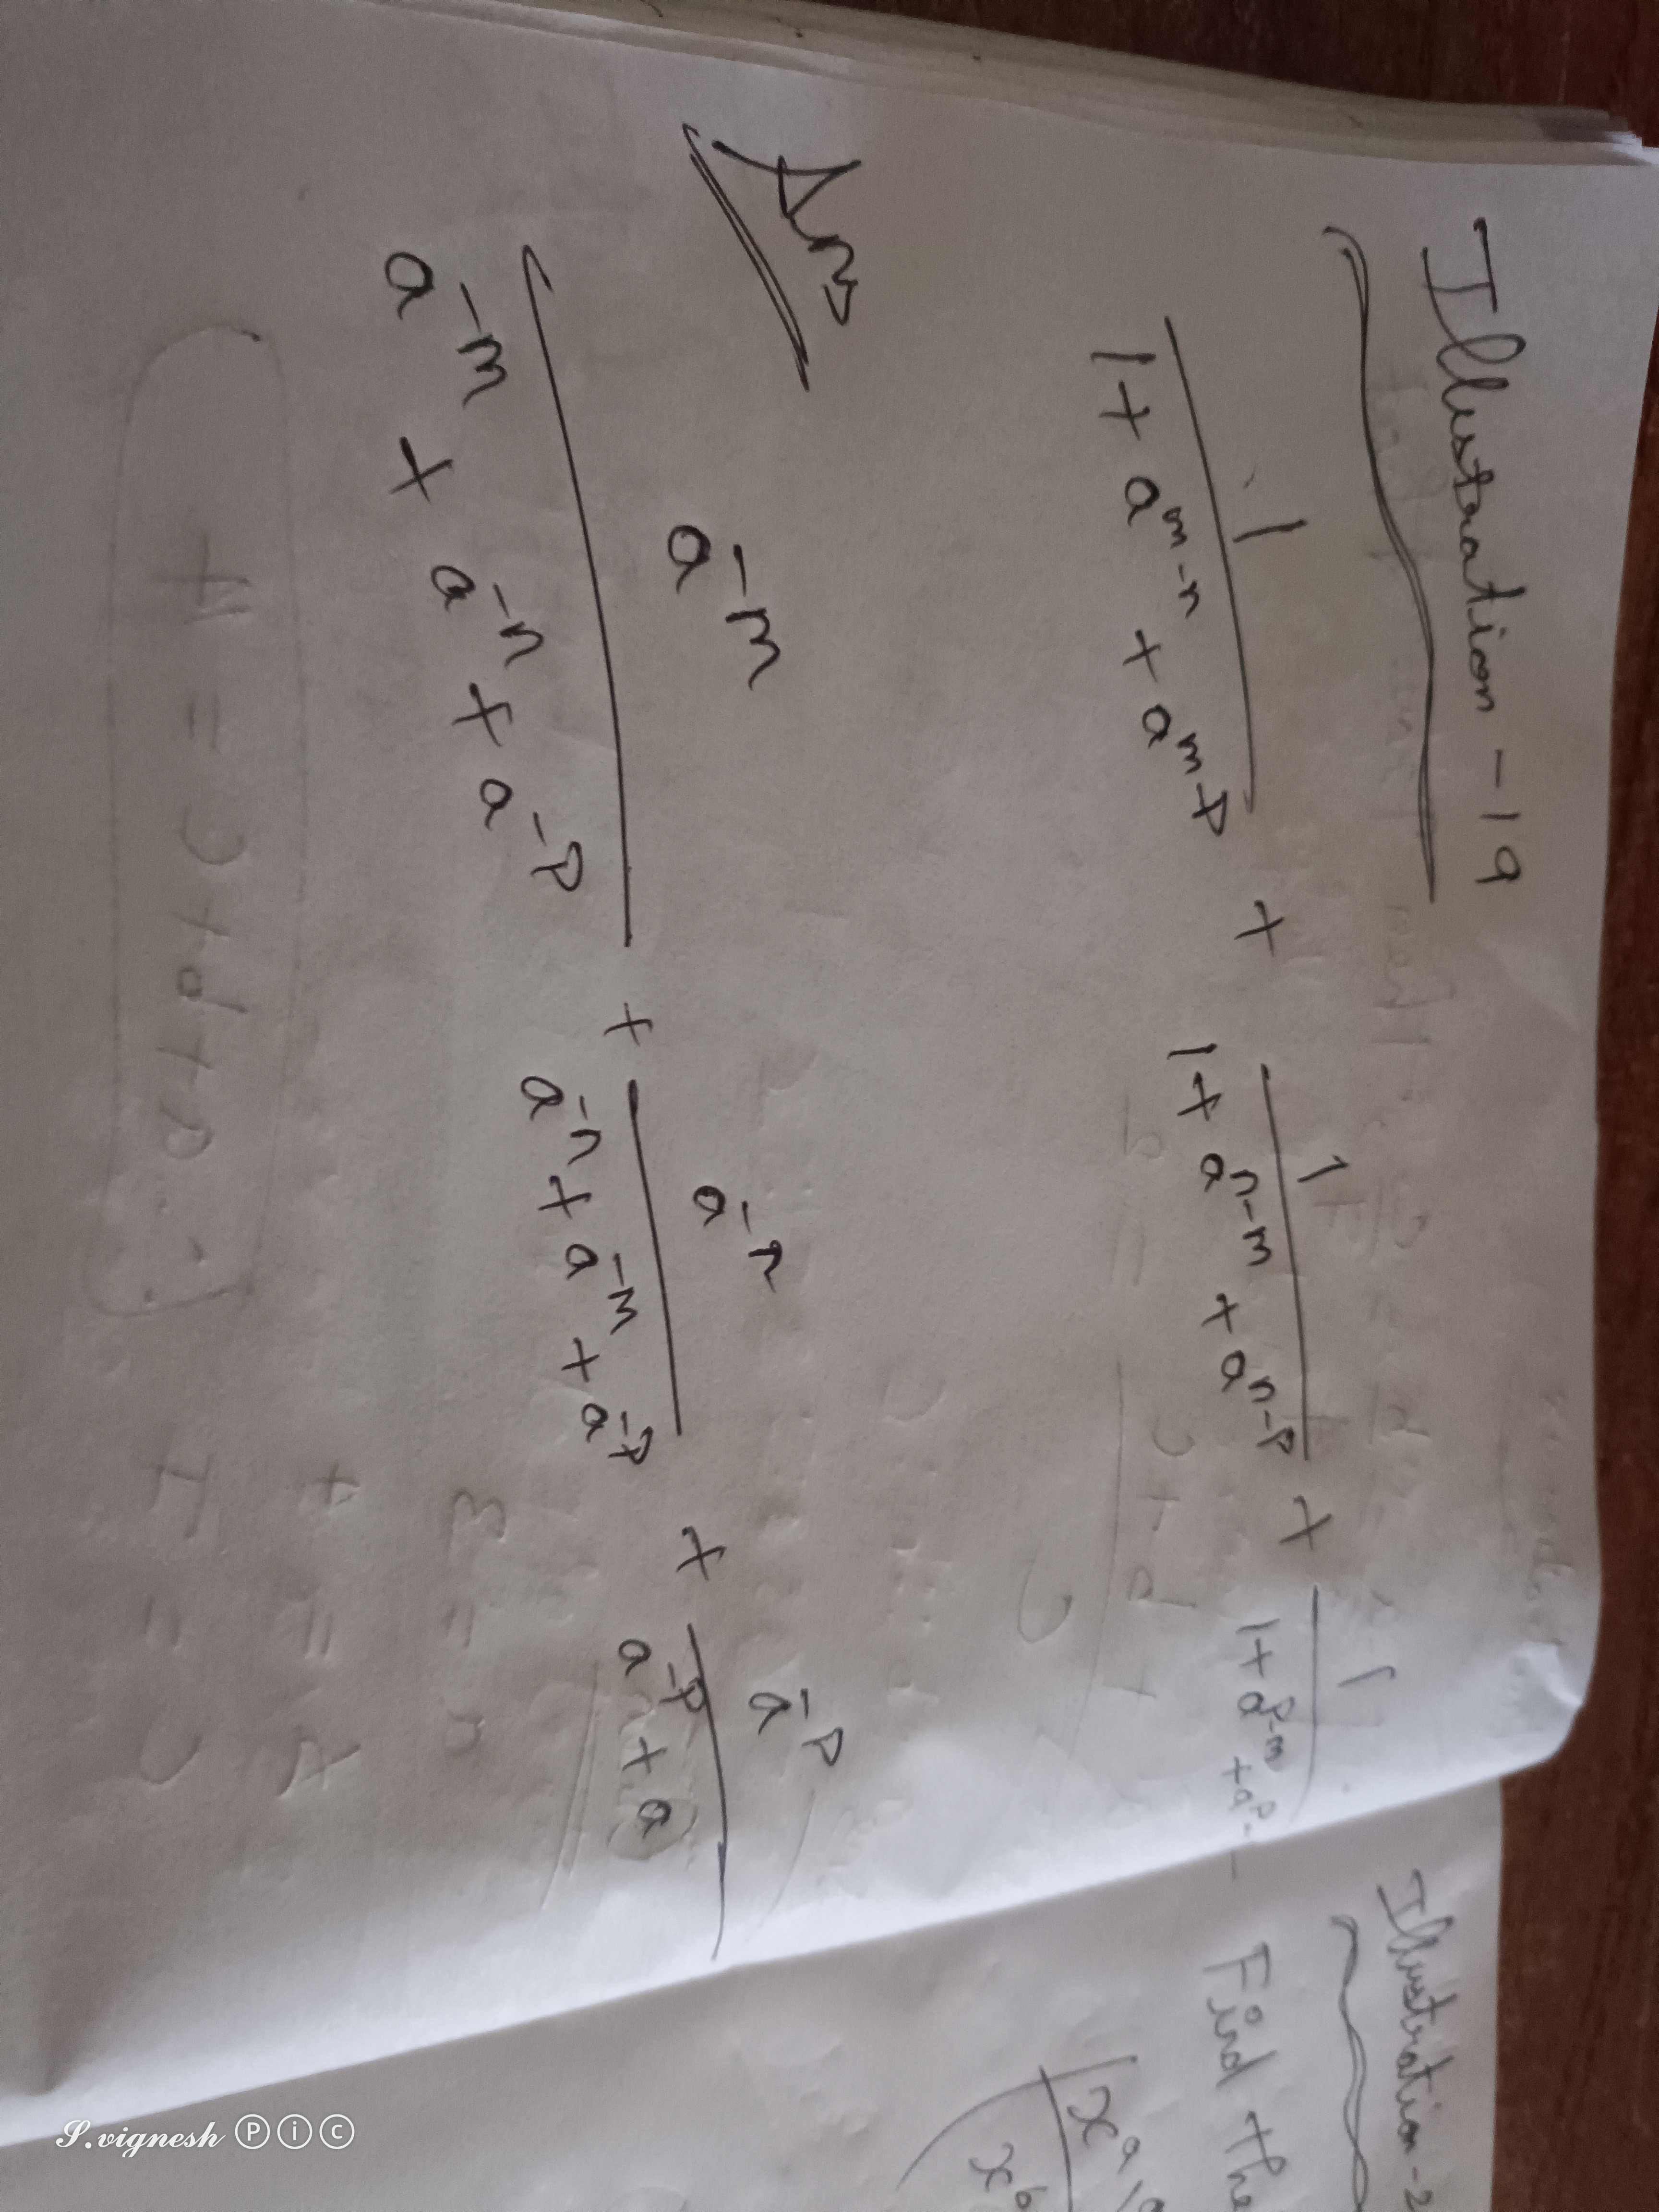 Illustration - 19
1/(1 + a^(m-n) + a^(m-p)) + 1/(1 + a^(n-m) + a^(n-p)) + 1/(1 + a^(p-m) + a^(p-
Ans
a^(-m)/(a^(-m) + a^(-n) + a^(-p)) + a^(-n)/(a^(-n) + a^(-m) + a^(-p)) + a^(-p)/(a^(-p) + a
Illustration - 2
Find the
x^a
x^b
S.vignesh PIC